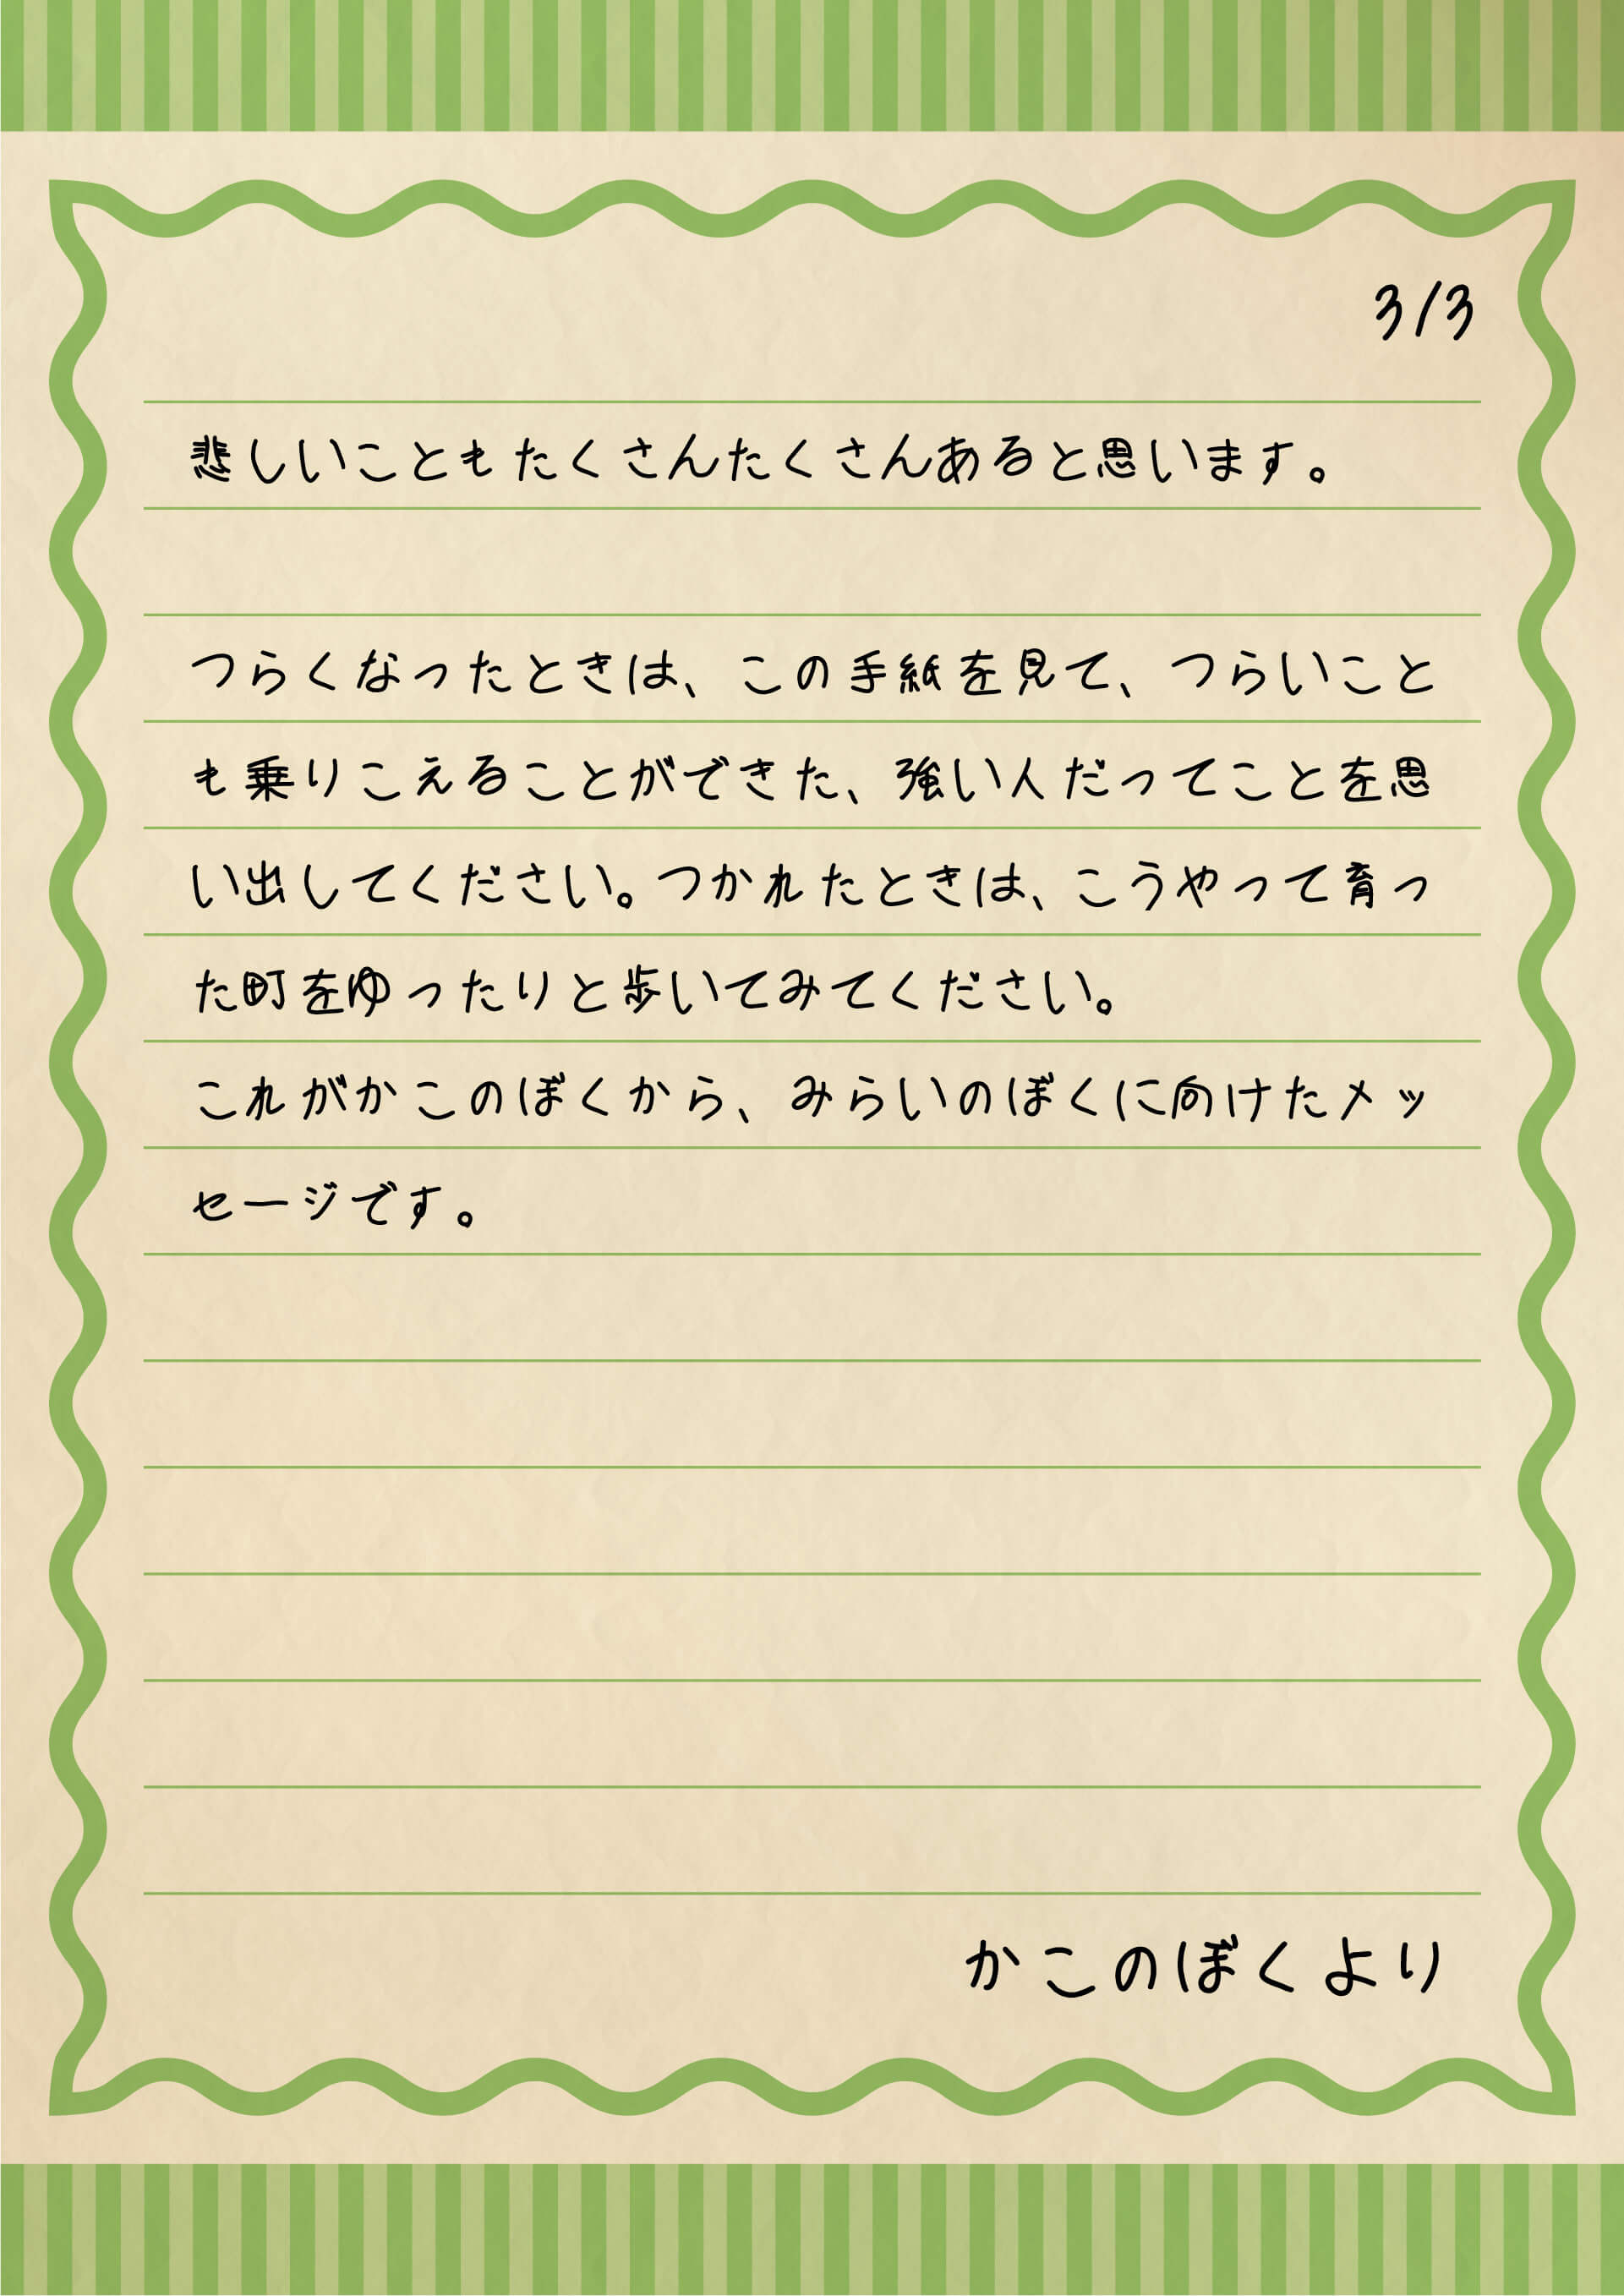 3/3
悲しいこともたくさんたくさんあると思います。
つらくなったときは、この手紙を見て、つらいこと
も乗りこえることができた、強い人だってことを思
い出してください。つかれたときは、こうやって育っ
た町をゆったりと歩いてみてください。
これがかこのぼくから、みらいのぼくに向けたメッ
セージです。
かこのぼくより